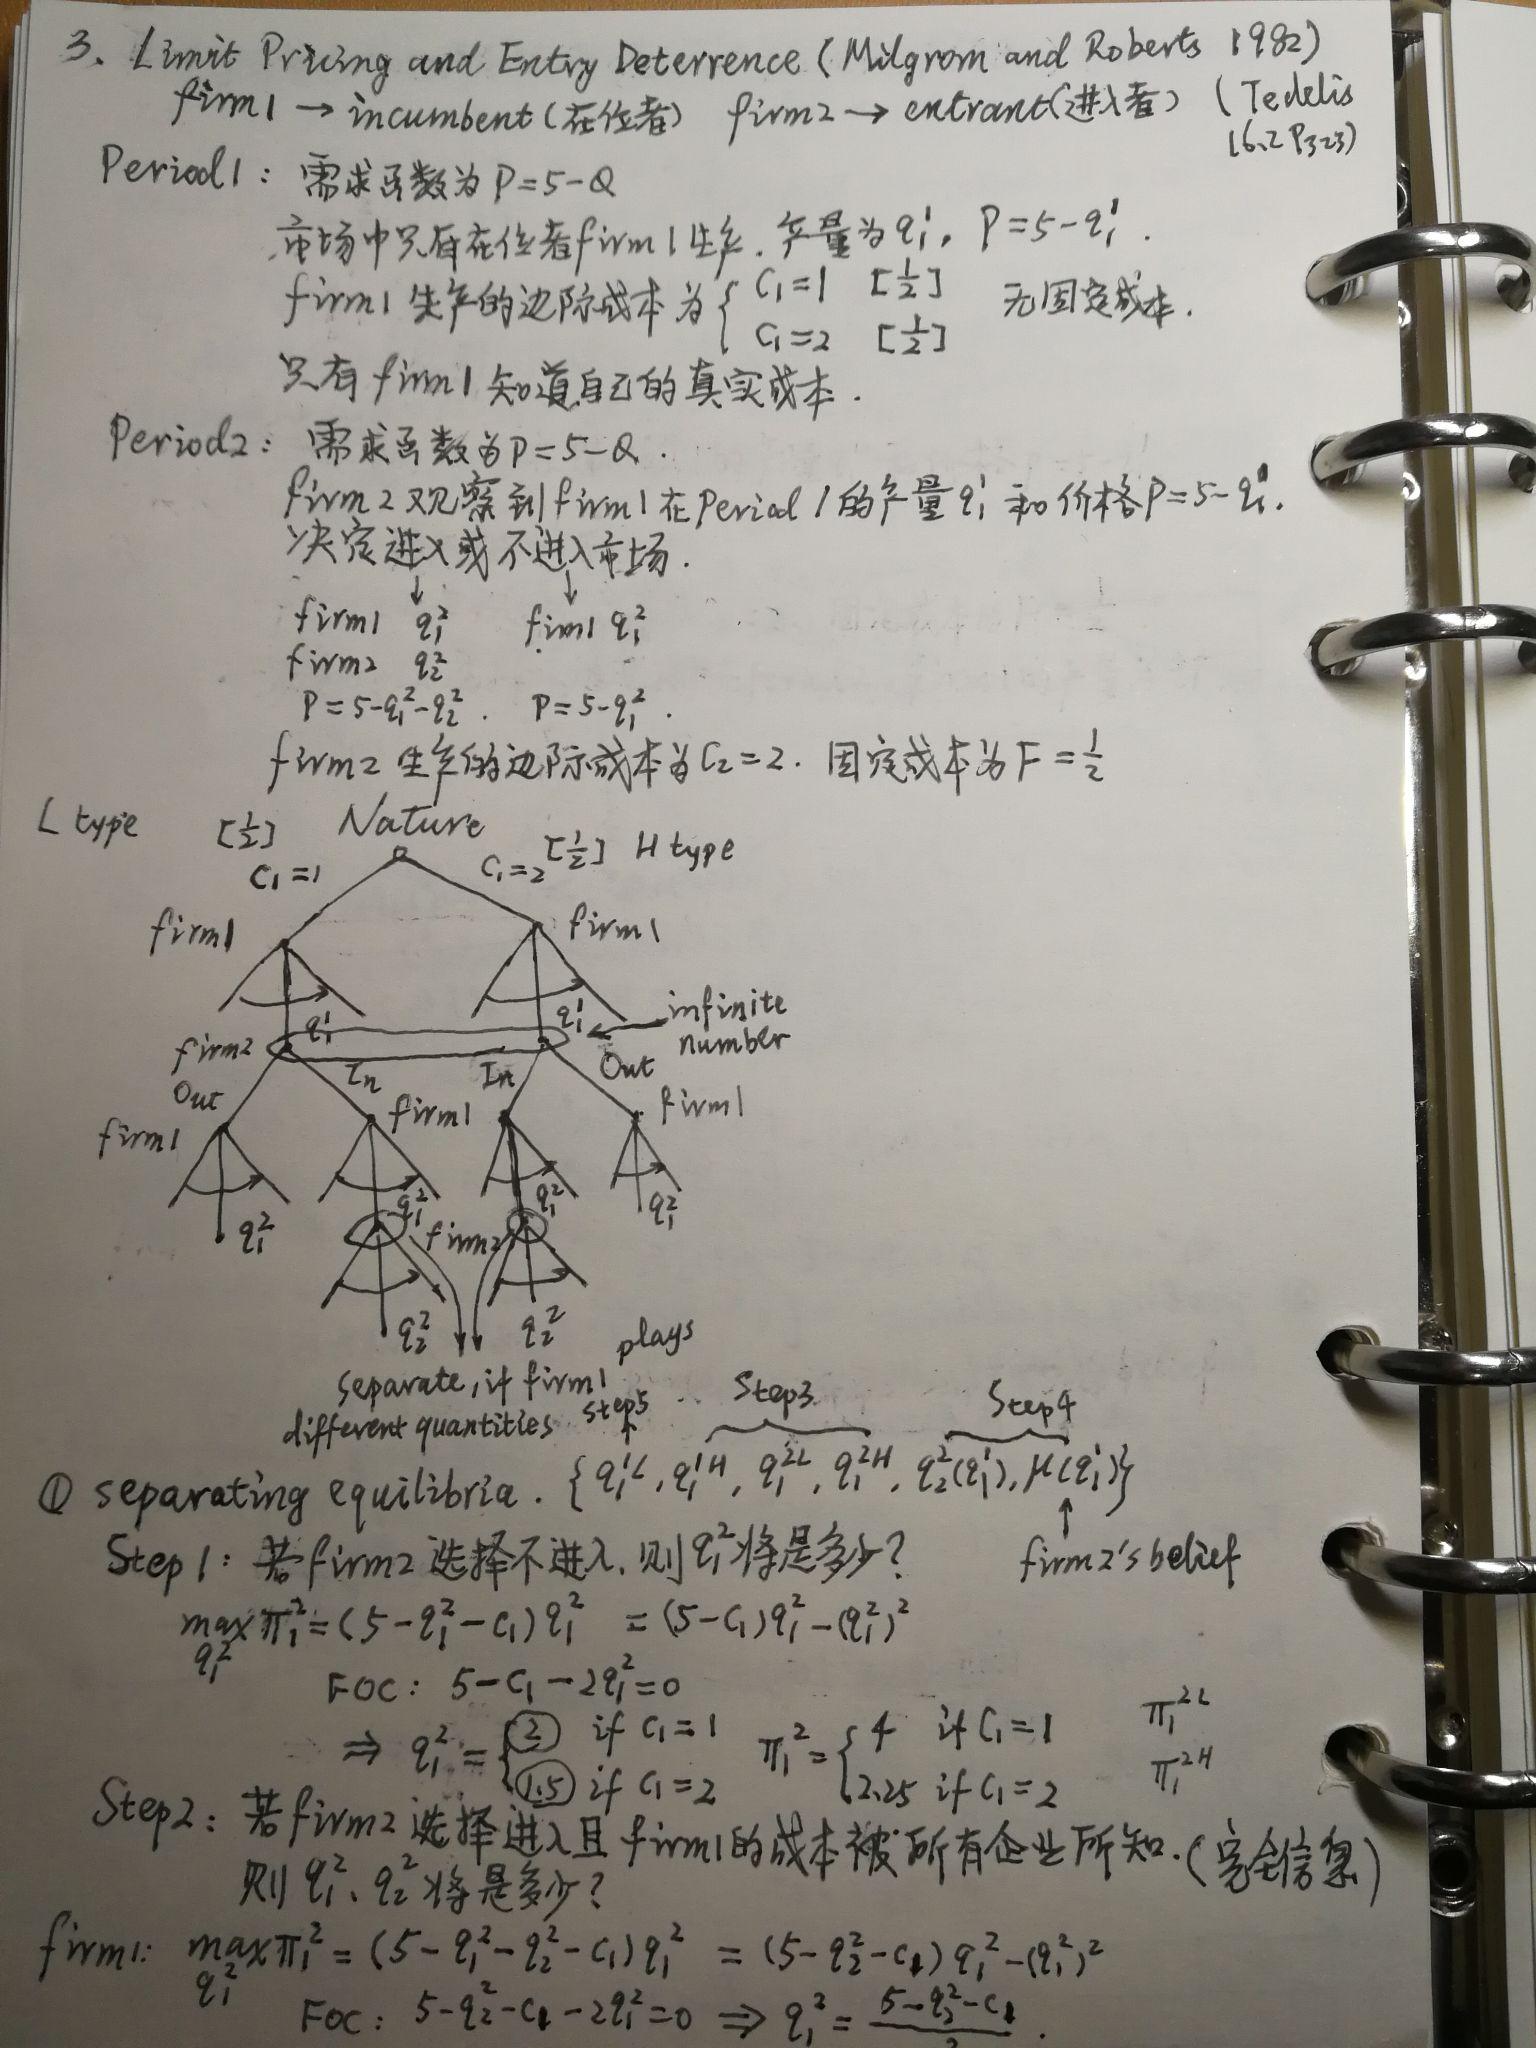 3. Limit Pricing and Entry Deterrence (Milgrom and Roberts 1982)
firm1 → incumbent (在位者) firm2 → entrant (进入者) (Tedelis
16.2 P323)
Period1: 需求函数为 P=5-Q
市场中只有在位者firm1生产. 产量为 q₁¹, P=5-q₁¹.
firm1生产的边际成本为 { C₁=1 [1/2] 无固定成本.
C₁=2 [1/2]
只有firm1知道自己的真实成本.
Period2: 需求函数为P=5-Q.
firm2观察到firm1在Period 1的产量q₁¹和价格P=5-q₁¹.
决定进入或不进入市场.
↓ ↓
firm1 q₁² firm1 q₁²
firm2 q₂²
P=5-q₁²-q₂². P=5-q₁².
firm2生产的边际成本为C₂=2. 固定成本为F=1/2
L type [1/2] Nature [1/2] H type
C₁=1 C₁=2
firm1 firm1
q₁¹ q₁¹ ← infinite number
firm2
Out In In Out
firm1 firm1 firm1
q₁² q₁² q₁² q₁²
firm2
q₂² q₂²
separate, if firm1 plays
different quantities
Step5 Step3 Step4
① separating equilibria. {q₁¹ᴸ, q₁¹ᴴ, q₁²ᴸ, q₁²ᴴ, q₂²(q₁¹), μ(q₁¹)}
↑
Step1: 若firm2选择不进入, 则q₁²将是多少? firm2's belief
max π₁² = (5-q₁²-C₁)q₁² = (5-C₁)q₁²-(q₁²)²
q₁²
FOC: 5-C₁-2q₁²=0
⇒ q₁² = { 2 if C₁=1 π₁² = { 4 if C₁=1 π₁²ᴸ
1.5 if C₁=2 2.25 if C₁=2 π₁²ᴴ
Step2: 若firm2选择进入且firm1的成本被所有企业所知. (完全信息)
则q₁²、q₂²将是多少?
firm1: max π₁² = (5-q₁²-q₂²-C₁)q₁² = (5-q₂²-C₁)q₁²-(q₁²)²
q₁²
FOC: 5-q₂²-C₁-2q₁²=0 ⇒ q₁² = (5-q₂²-C₁)/2.